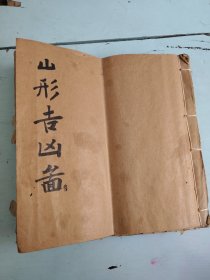 山形吉凶啚